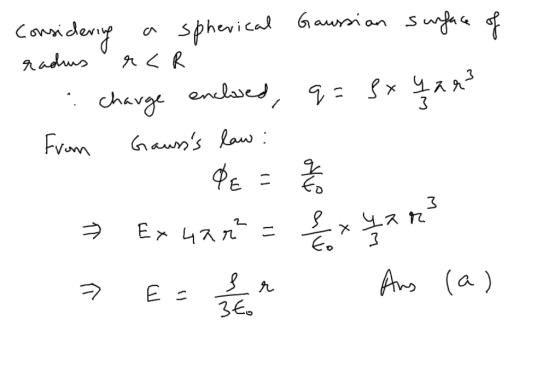 Considering a spherical Gaussian surface of
radius r < R
∴ charge enclosed, q = ρ × 4/3 π r³
From Gauss's law :
ϕ_E = q/ε₀
⇒ E × 4πr² = ρ/ε₀ × 4/3 π r³
⇒ E = ρ/3ε₀ r Ans (a)